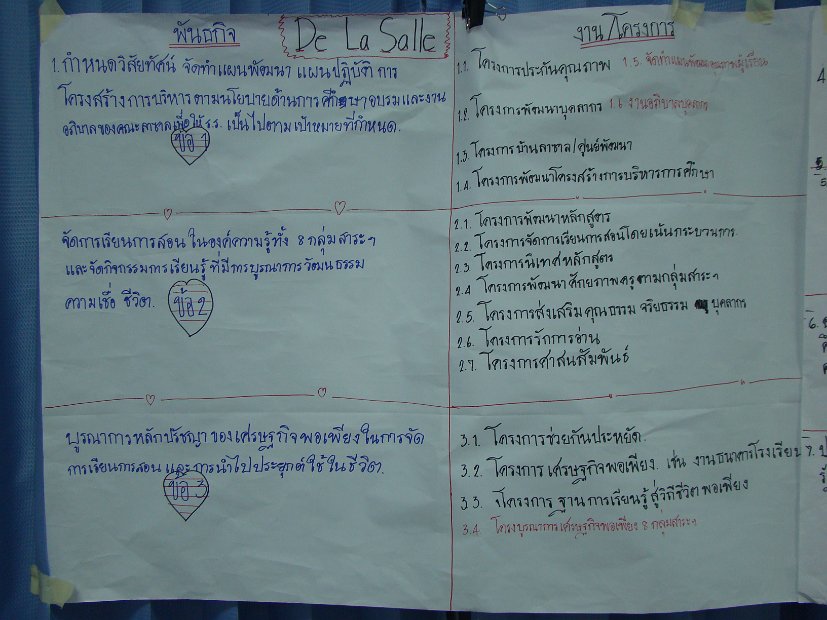 พันธกิจ
De La Salle
1. กำหนดวิสัยทัศน์ จัดทำแผนพัฒนา แผนปฏิบัติการ
โครงสร้างการบริหารตามนโยบายด้านการศึกษาอบรมและงาน
อภิบาลของคณะลาซาลเพื่อให้ รร. เป็นไปตามเป้าหมายที่กำหนด.
ข้อ 1
จัดการเรียนการสอน ในองค์ความรู้ทั้ง 8 กลุ่มสาระฯ
และจัดกิจกรรมการเรียนรู้ ที่มีการบูรณาการวัฒนธรรม
ความเชื่อ ชีวิต.
ข้อ 2
บูรณาการหลักปรัชญาของเศรษฐกิจพอเพียงในการจัด
การเรียนการสอน และการนำไปประยุกต์ใช้ในชีวิต.
ข้อ 3
งาน/โครงการ
1.1. โครงการประกันคุณภาพ 1.5. จัดทำแผนพัฒนาคุณภาพผู้เรียน
1.2. โครงการพัฒนาบุคลากร 1.6 งานอภิบาลบุคลากร
1.3. โครงการบ้านลาซาล/ศูนย์พัฒนา
1.4. โครงการพัฒนาโครงสร้างการบริหารการศึกษา
2.1. โครงการพัฒนาหลักสูตร
2.2. โครงการจัดการเรียนการสอนโดยเน้นกระบวนการ.
2.3 โครงการนิเทศหลักสูตร
2.4 โครงการพัฒนาศักยภาพครูตามกลุ่มสาระฯ
2.5. โครงการส่งเสริมคุณธรรม จริยธรรม บุคลากร
2.6. โครงการรักการอ่าน
2.7. โครงการศาสนสัมพันธ์
3.1. โครงการช่วยกันประหยัด.
3.2. โครงการเศรษฐกิจพอเพียง. เช่น งานธนาคารโรงเรียน
3.3. โครงการฐานการเรียนรู้สู่วิถีชีวิตพอเพียง
3.4. โครงบูรณาการเศรษฐกิจพอเพียง 8 กลุ่มสาระฯ
4
5
6.
7.